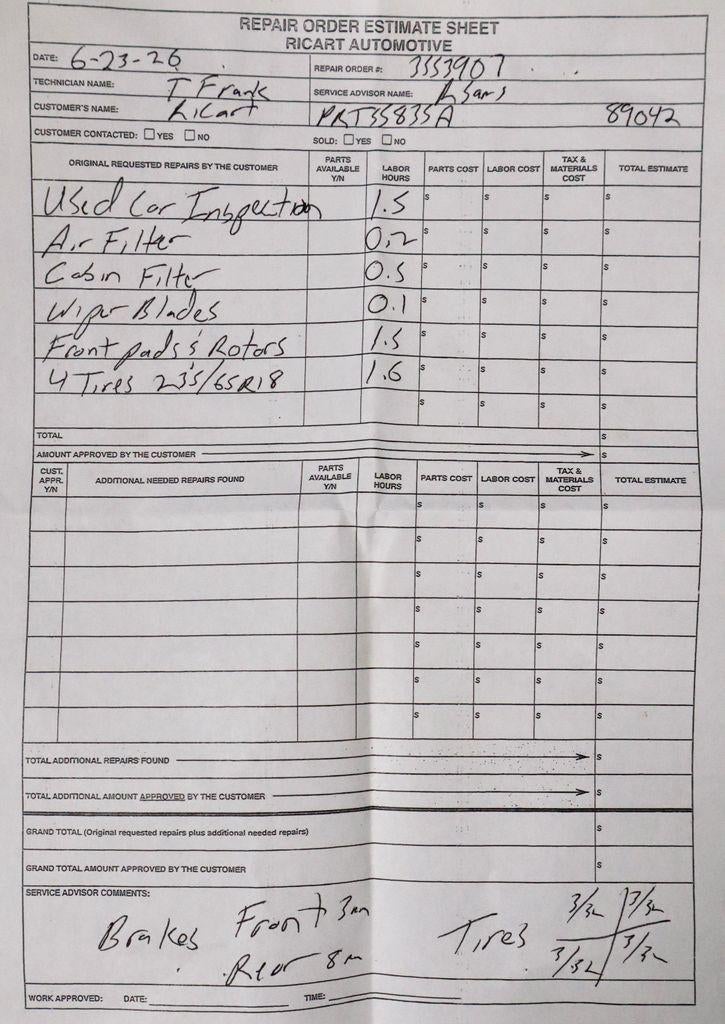 REPAIR ORDER ESTIMATE SHEET
RICART AUTOMOTIVE
DATE: 6-23-26 REPAIR ORDER #: 3553907
TECHNICIAN NAME: T Frank SERVICE ADVISOR NAME:
CUSTOMER'S NAME: Ricart PRT35835A 89042
CUSTOMER CONTACTED: ☐ YES ☐ NO SOLD: ☐ YES ☐ NO
ORIGINAL REQUESTED REPAIRS BY THE CUSTOMER PARTS AVAILABLE Y/N LABOR HOURS PARTS COST LABOR COST TAX & MATERIALS COST TOTAL ESTIMATE
Used Car Inspection 1.5 $ $ $ $
Air Filter 0.2 $ $ $ $
Cabin Filter 0.5 $ $ $ $
Wiper Blades 0.1 $ $ $ $
Front pads & Rotors 1.5 $ $ $ $
4 Tires 235/65R18 1.6 $ $ $ $
$ $ $ $
TOTAL $
AMOUNT APPROVED BY THE CUSTOMER $
CUST. APPR. Y/N ADDITIONAL NEEDED REPAIRS FOUND PARTS AVAILABLE Y/N LABOR HOURS PARTS COST LABOR COST TAX & MATERIALS COST TOTAL ESTIMATE
$ $ $ $
$ $ $ $
$ $ $ $
$ $ $ $
$ $ $ $
$ $ $ $
$ $ $ $
TOTAL ADDITIONAL REPAIRS FOUND $
TOTAL ADDITIONAL AMOUNT APPROVED BY THE CUSTOMER $
GRAND TOTAL (Original requested repairs plus additional needed repairs) $
GRAND TOTAL AMOUNT APPROVED BY THE CUSTOMER $
SERVICE ADVISOR COMMENTS:
Brakes Front 3m Tires 3/32 3/32
Rear 8m 3/32 3/32
WORK APPROVED: DATE: TIME: